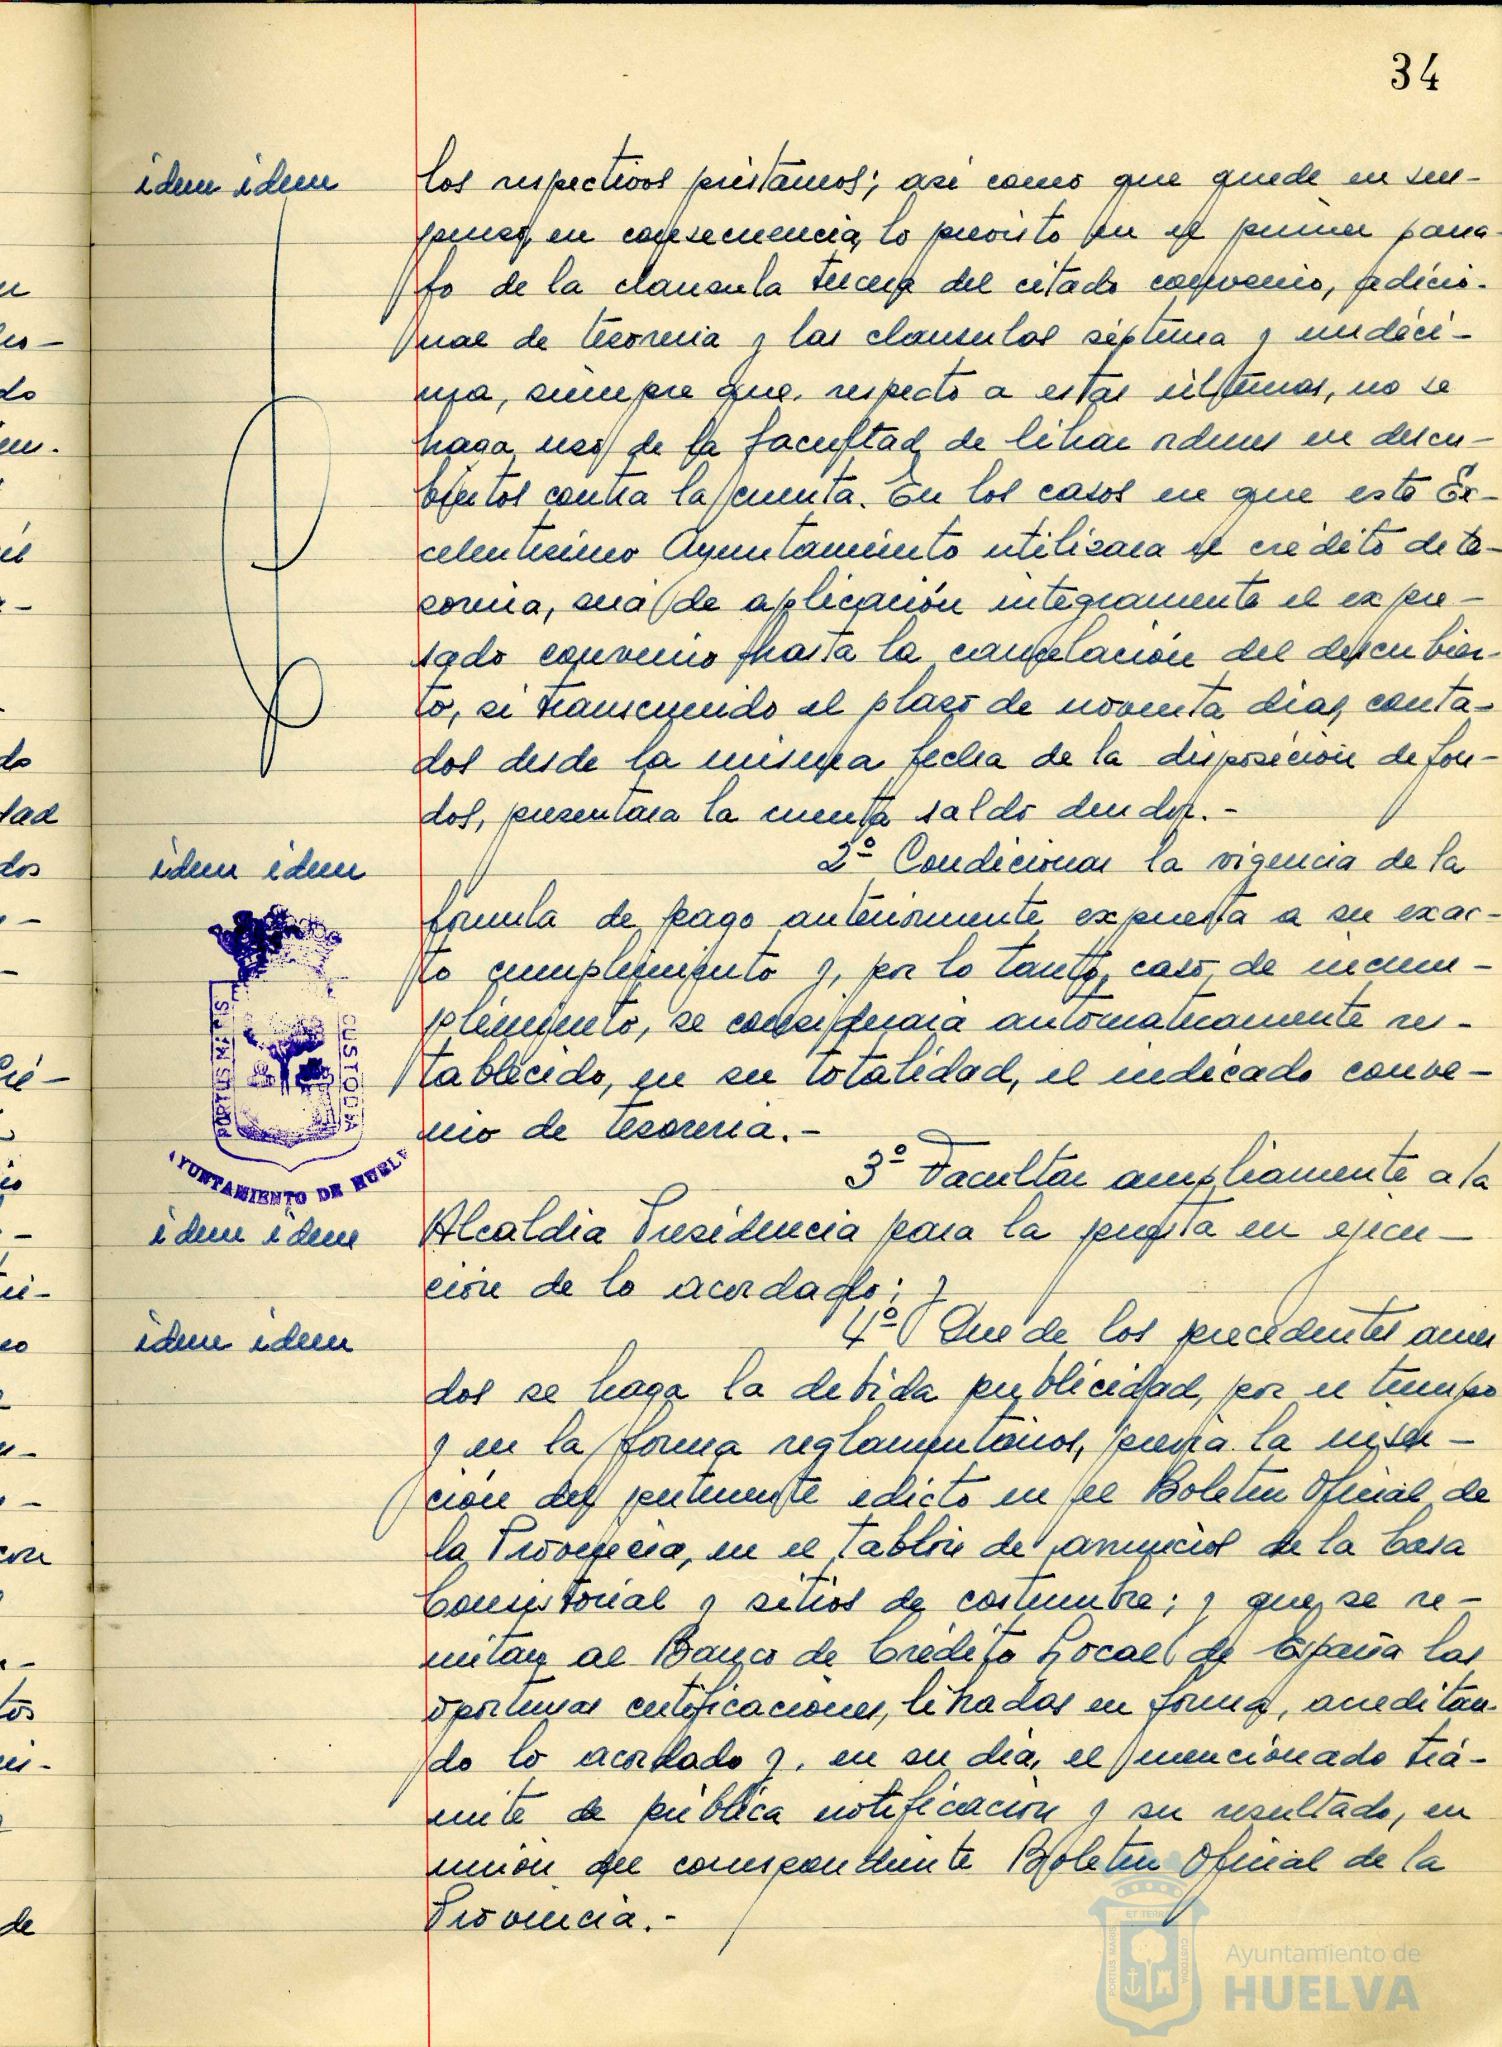 34
idem idem
los respectivos préstamos; asi como que quede en sus-
penso, en consecuencia, lo previsto en el primer parra-
fo de la clausula tercera del citado convenio, adicio-
nal de tesoreria y las clausulas séptima y undéci-
ma, siempre que, respecto a estas últimas, no se
haga uso de la facultad de librar ordenes en descu-
biertos contra la cuenta. En los casos en que este Ex-
celentisimo Ayuntamiento utilizara el crédito de te-
soreria, será de aplicación integramente el expre-
sado convenio hasta la cancelación del descubier-
to, si transcurrido el plazo de noventa dias, conta-
dos desde la misma fecha de la disposición de fon-
dos, presentara la cuenta saldo deudor.-
idem idem
2º Condicionar la vigencia de la
fórmula de pago anteriormente expuesta a su exac-
to cumplimiento y, por lo tanto, caso de incum-
plimiento, se considerará automaticamente res-
tablecido, en su totalidad, el indicado conve-
nio de tesoreria.-
PORTUS MARIS
CUSTODIA
AYUNTAMIENTO DE HUELVA
3º Facultar ampliamente a la
idem idem
Alcaldia Presidencia para la puesta en ejecu-
ción de lo acordado; y
idem idem
4º Que de los precedentes acuer
dos se haga la debida publicidad, por el tiempo
y en la forma reglamentarios, previa la inser-
ción del pertinente edicto en el Boletin Oficial de
la Provincia, en el tablón de anuncios de la Casa
Consistorial y sitios de costumbre; y que se re-
mitan al Banco de Crédito Local de España las
oportunas certificaciones, libradas en forma, acreditan-
do lo acordado y, en su dia, el mencionado trá-
mite de pública notificación y su resultado, en
unión del correspondiente Boletin Oficial de la
Provincia.-
ET TERRAE
PORTUS MARIS
CUSTODIA
Ayuntamiento de
HUELVA